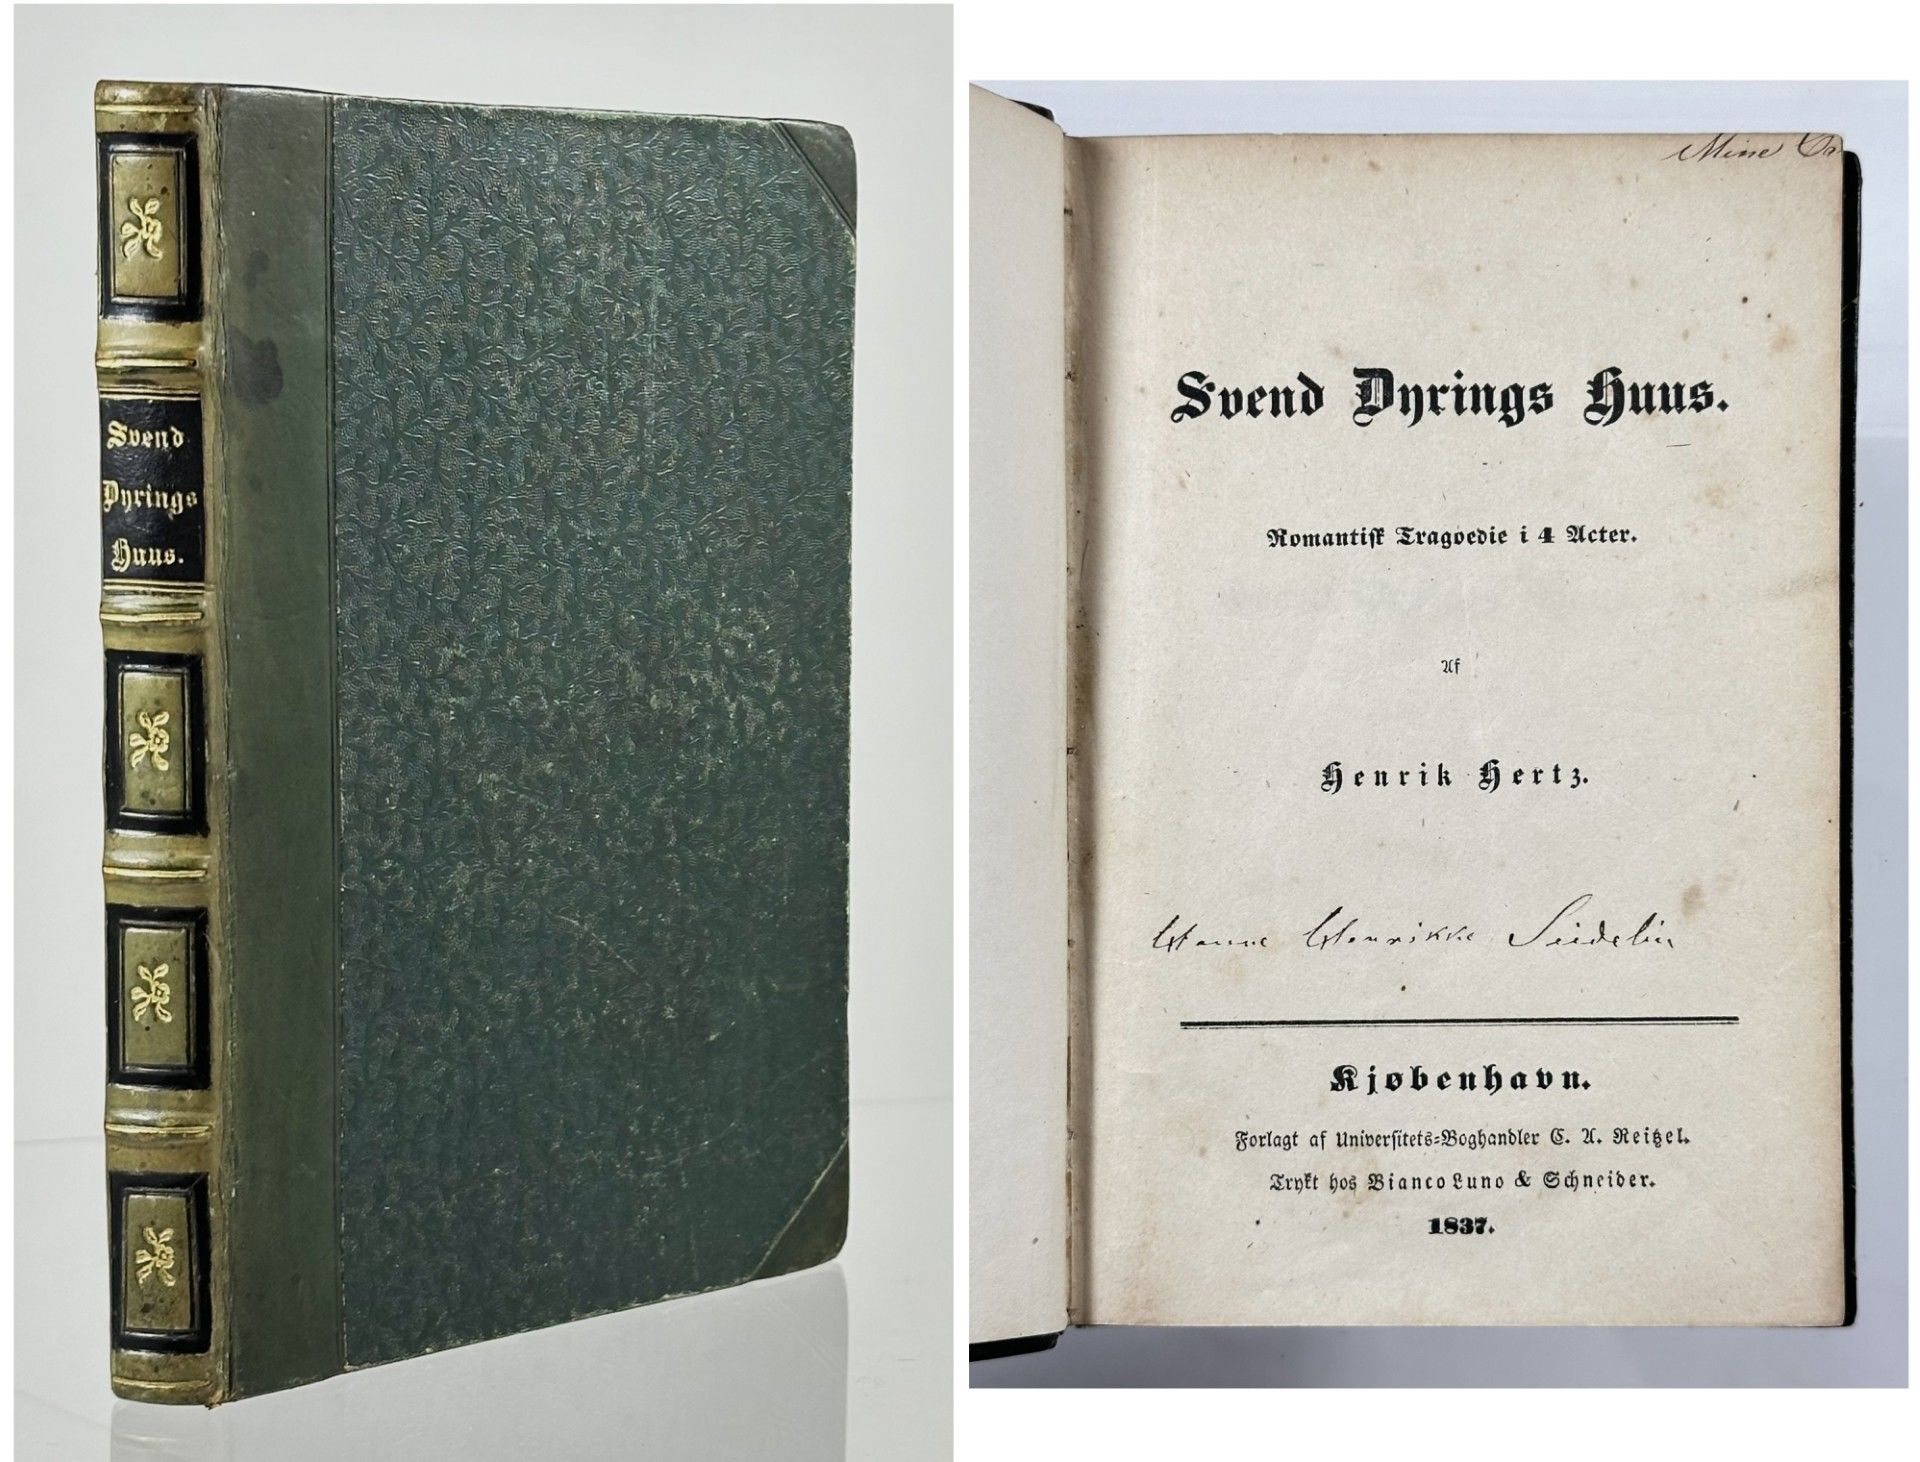 Svend
Dyrings
Huus.
Mine
Svend Dyrings Huus.
Romantisk Tragoedie i 4 Acter.
Af
Henrik Hertz.
Hanne Henrikke Seidelin
Kjøbenhavn.
Forlagt af Universitets-Boghandler C. A. Reitzel.
Trykt hos Bianco Luno & Schneider.
1837.